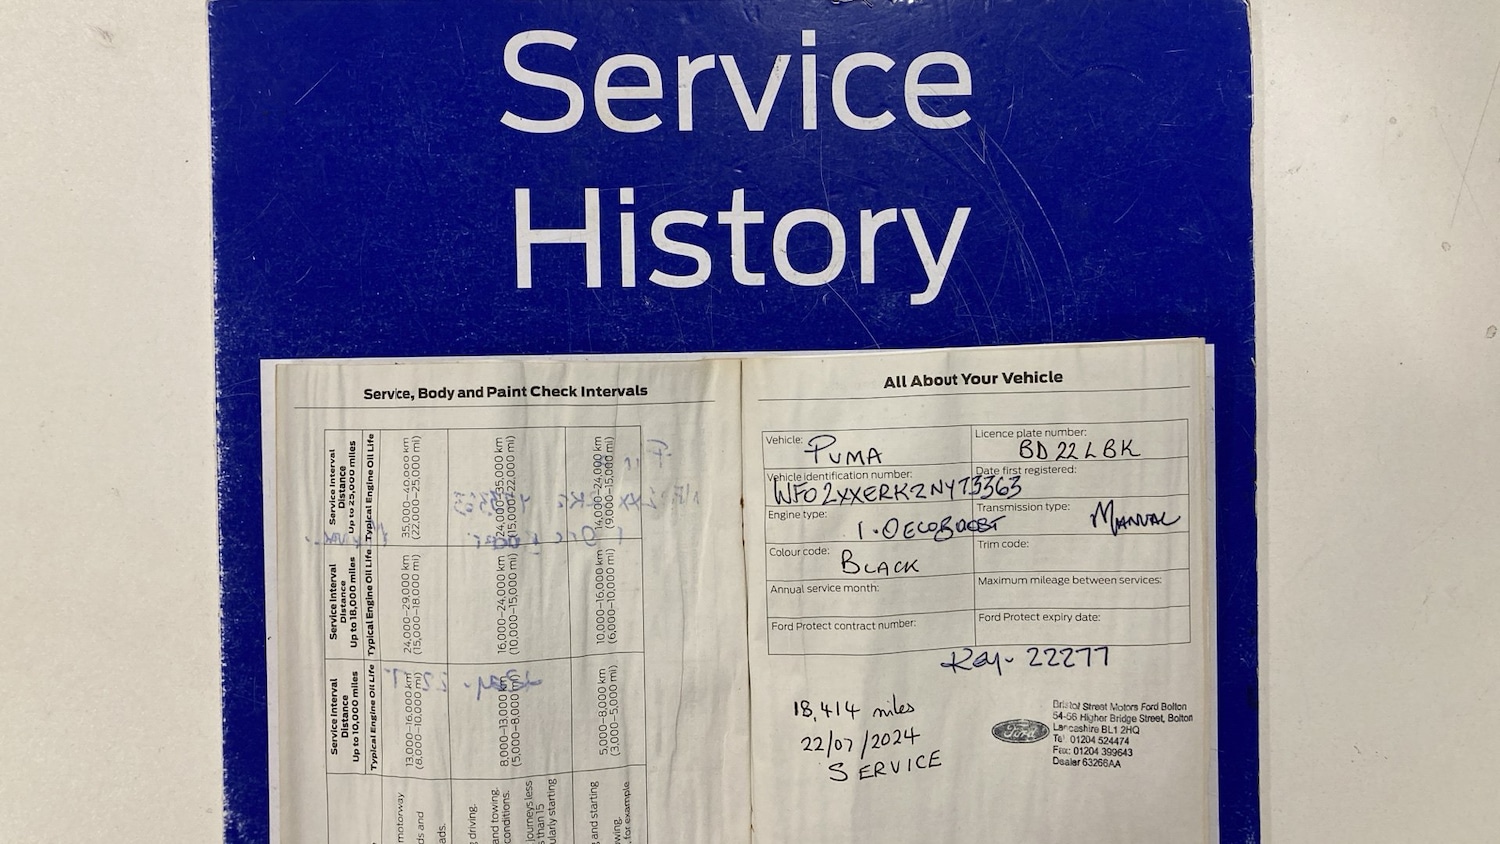 Service
History
Service, Body and Paint Check Intervals
Service Interval Distance Up to 25,000 miles
Typical Engine Oil Life
35,000–40,000 km
(22,000–25,000 mi)
24,000–35,000 km
(15,000–22,000 mi)
14,000–24,000 km
(9,000–15,000 mi)
Service Interval Distance Up to 18,000 miles
Typical Engine Oil Life
24,000–29,000 km
(15,000–18,000 mi)
16,000–24,000 km
(10,000–15,000 mi)
10,000–16,000 km
(6,000–10,000 mi)
Service Interval Distance Up to 10,000 miles
Typical Engine Oil Life
13,000–16,000 km
(8,000–10,000 mi)
8,000–13,000 km
(5,000–8,000 mi)
5,000–8,000 km
(3,000–5,000 mi)
motorway
ds and
ads.
driving.
and towing.
conditions.
journeys less
than 15
ularly starting
and starting
wing.
for example
All About Your Vehicle
Vehicle: PUMA
Licence plate number: BD 22 LBK
Vehicle identification number: WF02XXERK2NY73363
Date first registered:
Engine type: 1.0 ECOBOOST
Transmission type: MANUAL
Colour code: BLACK
Trim code:
Annual service month:
Maximum mileage between services:
Ford Protect contract number:
Ford Protect expiry date:
Key- 22277
18,414 miles
22/07/2024
SERVICE
Ford
Bristol Street Motors Ford Bolton
54-56 Higher Bridge Street, Bolton
Lancashire BL1 2HQ
Tel: 01204 524474
Fax: 01204 399643
Dealer 63266AA